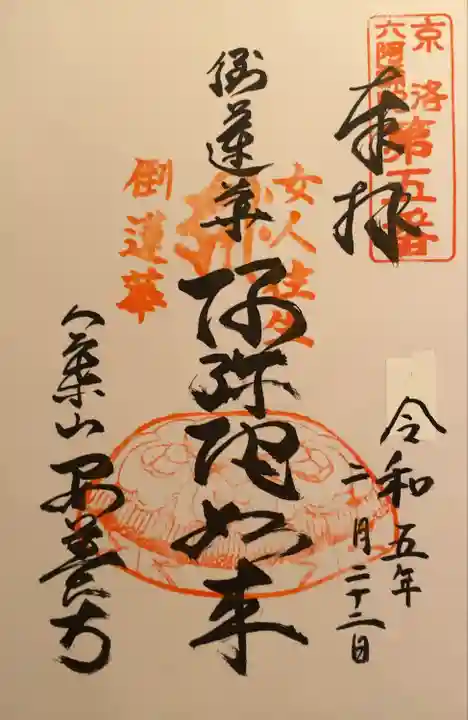 京洛
六阿弥陀
第五番
奉拝
令和五年
二月二十二日
女人往生
倒蓮華
阿弥陀如来
倒蓮華
八葉山
安養寺